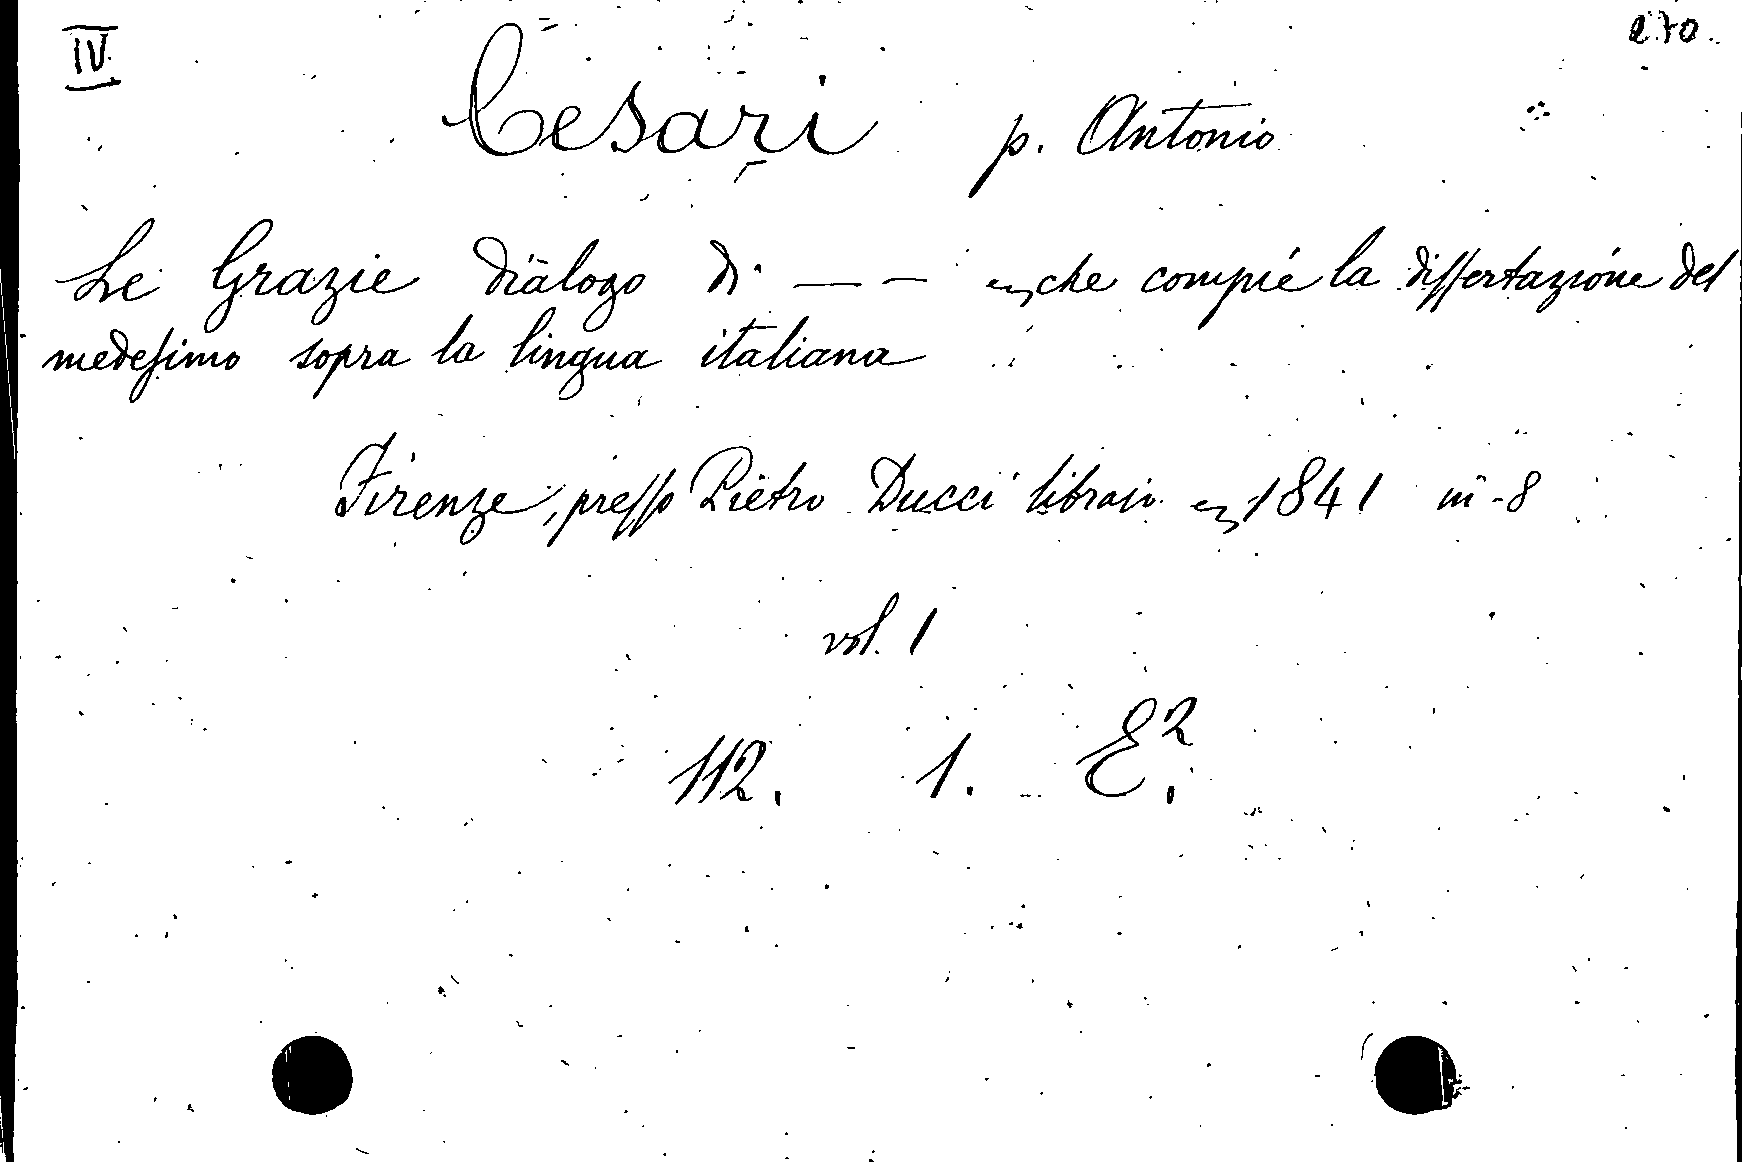 IV 270.
Cesari p. Antonio
Le Grazie dialogo di — — che compie la dissertazione del
medesimo sopra la lingua italiana
Firenze, presso Pietro Ducci libraio 1841 in-8
vol. 1
112. 1. E².